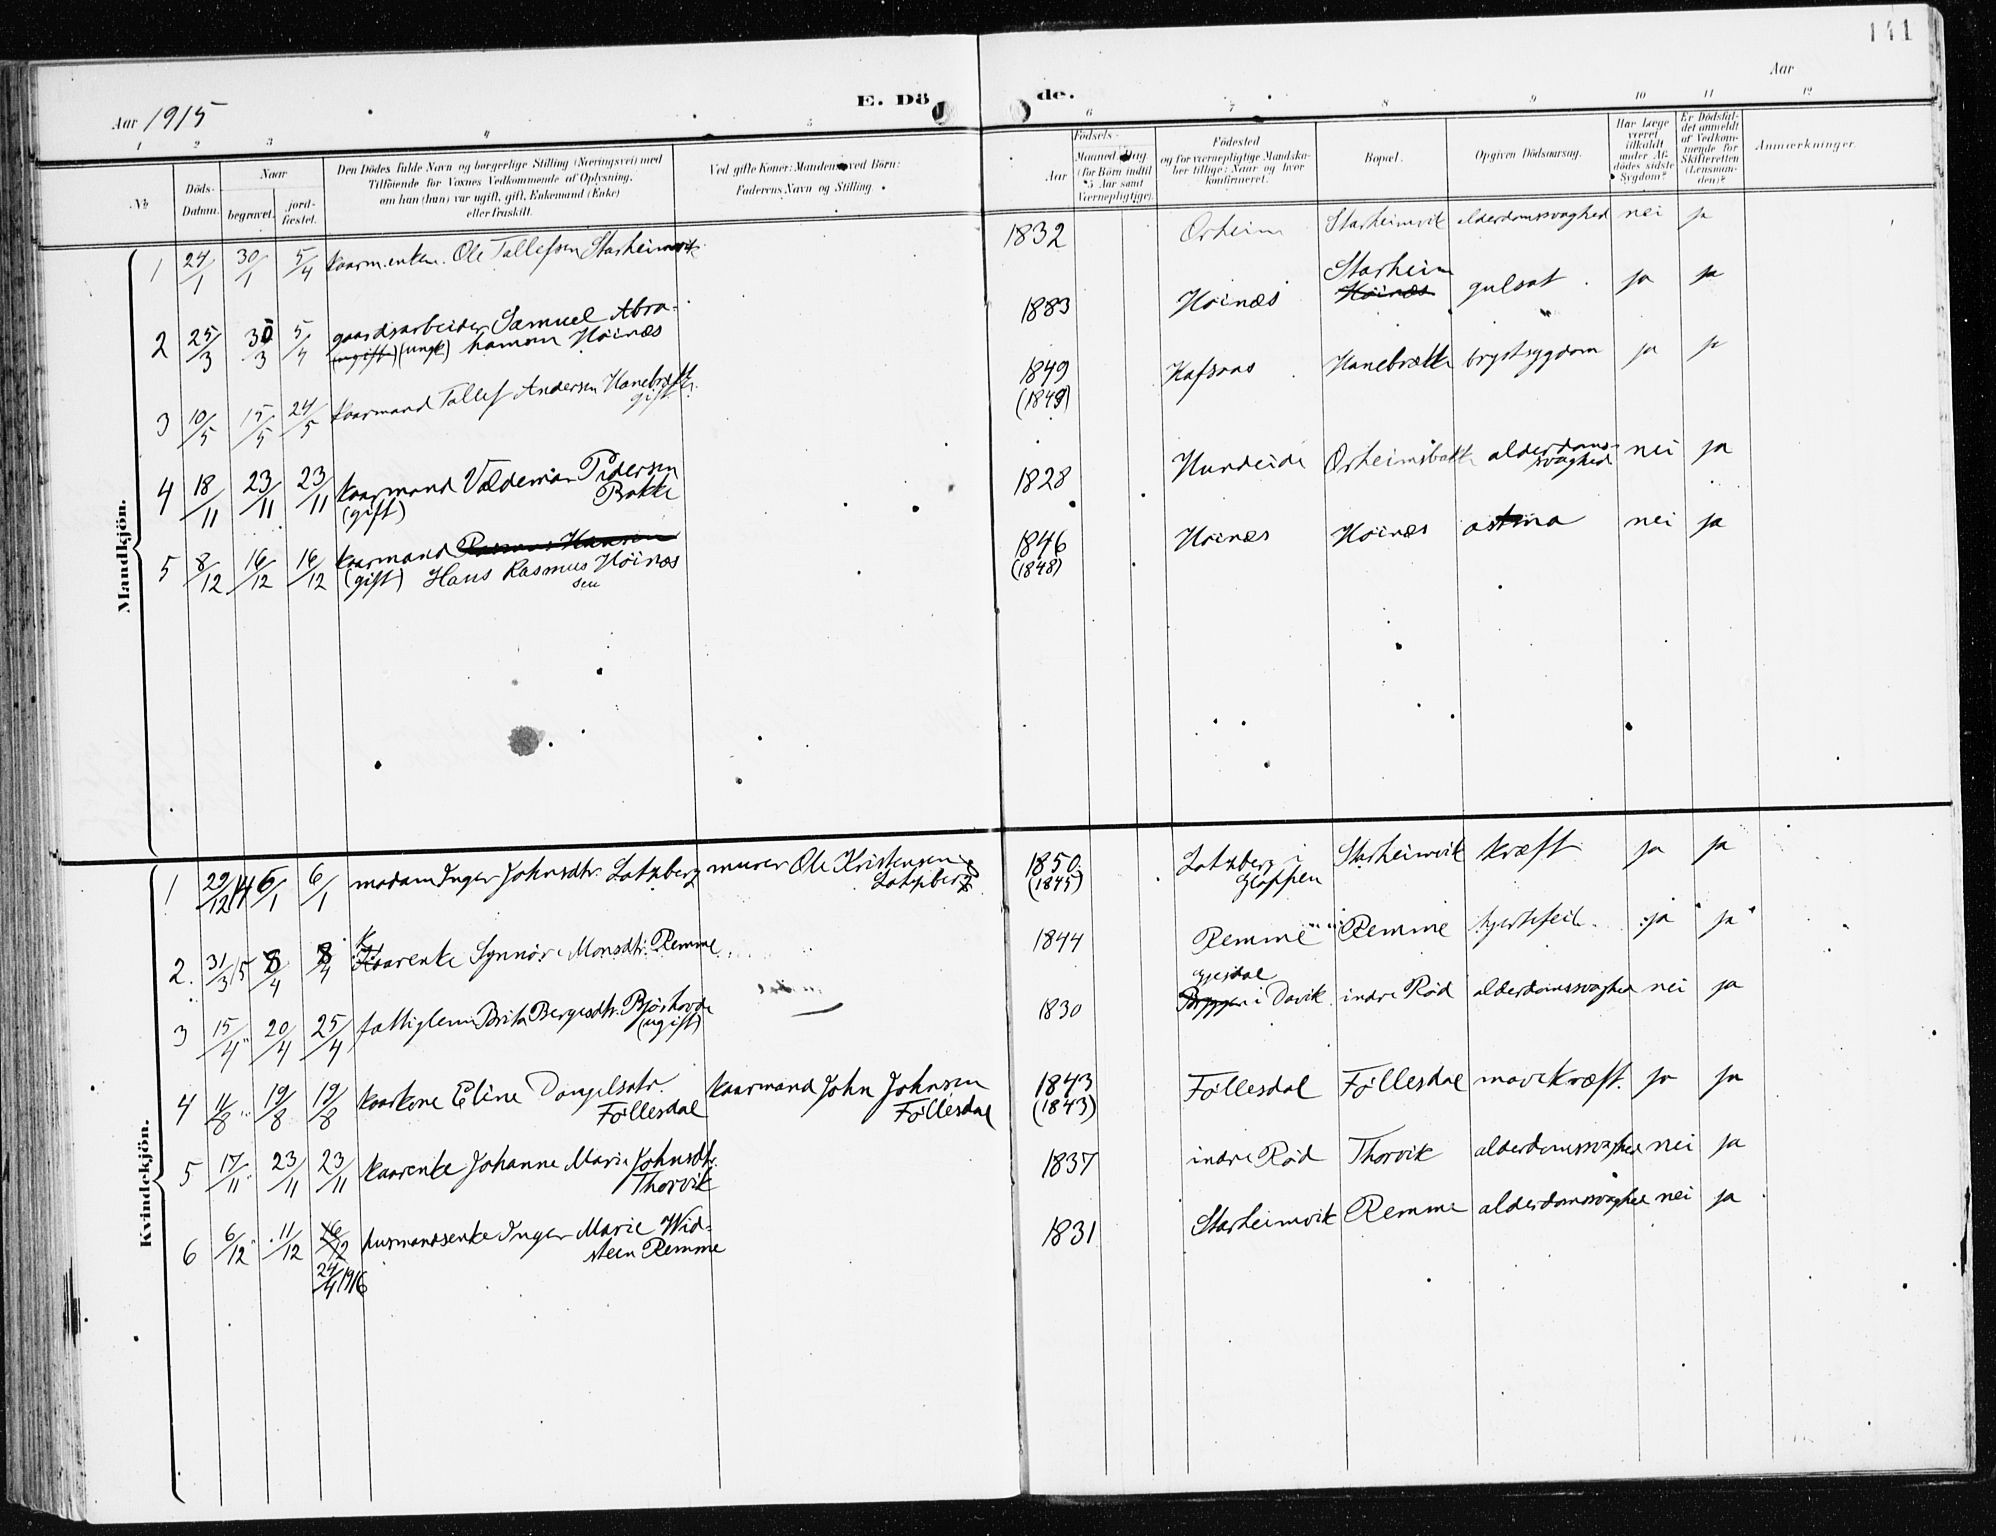 141
Aar 1915
E. Dö
de.
Aar
1 2 3 4 5 6 7 8 9 10 11 12
No.
Döds-
Datum.
Naar
begravet.
jord-
fæstet.
Den Dödes fulde Navn og borgerlige Stilling (Næringsvei) med
Tilföiende for Voxnes Vedkommende af Oplysning,
om han (hun) var ugift, gift, Enkemand (Enke)
eller fraskilt.
Ved gifte Koner: Mandens, ved Börn:
Faderens Navn og Stilling.
Födsels-
Aar
Maaned. Dag.
(for Börn indtil
5 Aar samt
Værnepligtige).
Födested
og for værnepligtige Mandska-
ber tillige: Naar og hvor
konfirmeret.
Bopæl.
Opgiven Dödsaarsag.
Har Læge
været
tilkaldt
under Af-
dödes sidste
Sygdom?
Er Dödsfal-
det anmeldt
af Vedkom-
mende for
Skifteretten
(Lensman-
den)?
Anmærkninger.
Mandkjön.
1 24/1 30/1 5/4 kaarm. enkem. Ole Tollefsen Starheimvik 1832 Orheim Starheimvik alderdomssvaghed nei ja
2 25/3 30/3 5/4 gaardsarbeider Samuel Abra-
(ugift) (ungk) hamsen Höinæs 1883 Höinæs Starheim
Höinæs gulsot ja ja
3 10/5 15/5 24/5 kaarmand Tollef Andersen Hanebrætte
gift 1849
(1849) Hafsaas Hanebrætte brystsygdom ja ja
4 18/11 23/11 23/11 kaarmand Valdemar Pedersen
(gift) Bakke 1828 Hundeide Orheimsbakk alderdoms-
svaghed nei ja
5 8/12 16/12 16/12 kaarmand Rasmus Hansen
(gift) Hans Rasmus Höinæs
sen 1846
(1848) Höinæs Höinæs astma nei ja
Kvindekjön.
1 29/12 14 6/1 6/1 madam Inger Johnsdtr. Lotzberg murer Ole Kristensen
Lotzberg 1850
(1845) Lotzberg i
Gloppen Starheimvik kræft ja ja
2. 31/3 15 8/4 8/4 Kaarenke Synnöve Monsdtr. Remme 1844 Remme Remme hjertefeil ja ja
3 15/4 20/4 25/4 fattiglem Brita Bergesdtr. Björhovde
(ugift) 1830 Gjesdal
i Davik indre Rød alderdomssvaghed nei ja
4 11/8 19/8 19/8 kaarkone Eline Danielsdtr.
Föllesdal kaarmand John Johnsen
Föllesdal 1843
(1843) Föllesdal Föllesdal mavekræft. ja ja
5 17/11 23/11 23/11 kaarenke Johanne Marie Johnsdtr.
Thorvik 1837 indre Rød Thorvik alderdomssvaghed nei ja
6 6/12 11/12 16/12 husmandsenke Inger Marie Wid-
steen Remme 1831 Starheimvik Remme alderdomssvaghed nei ja
24/4 1916